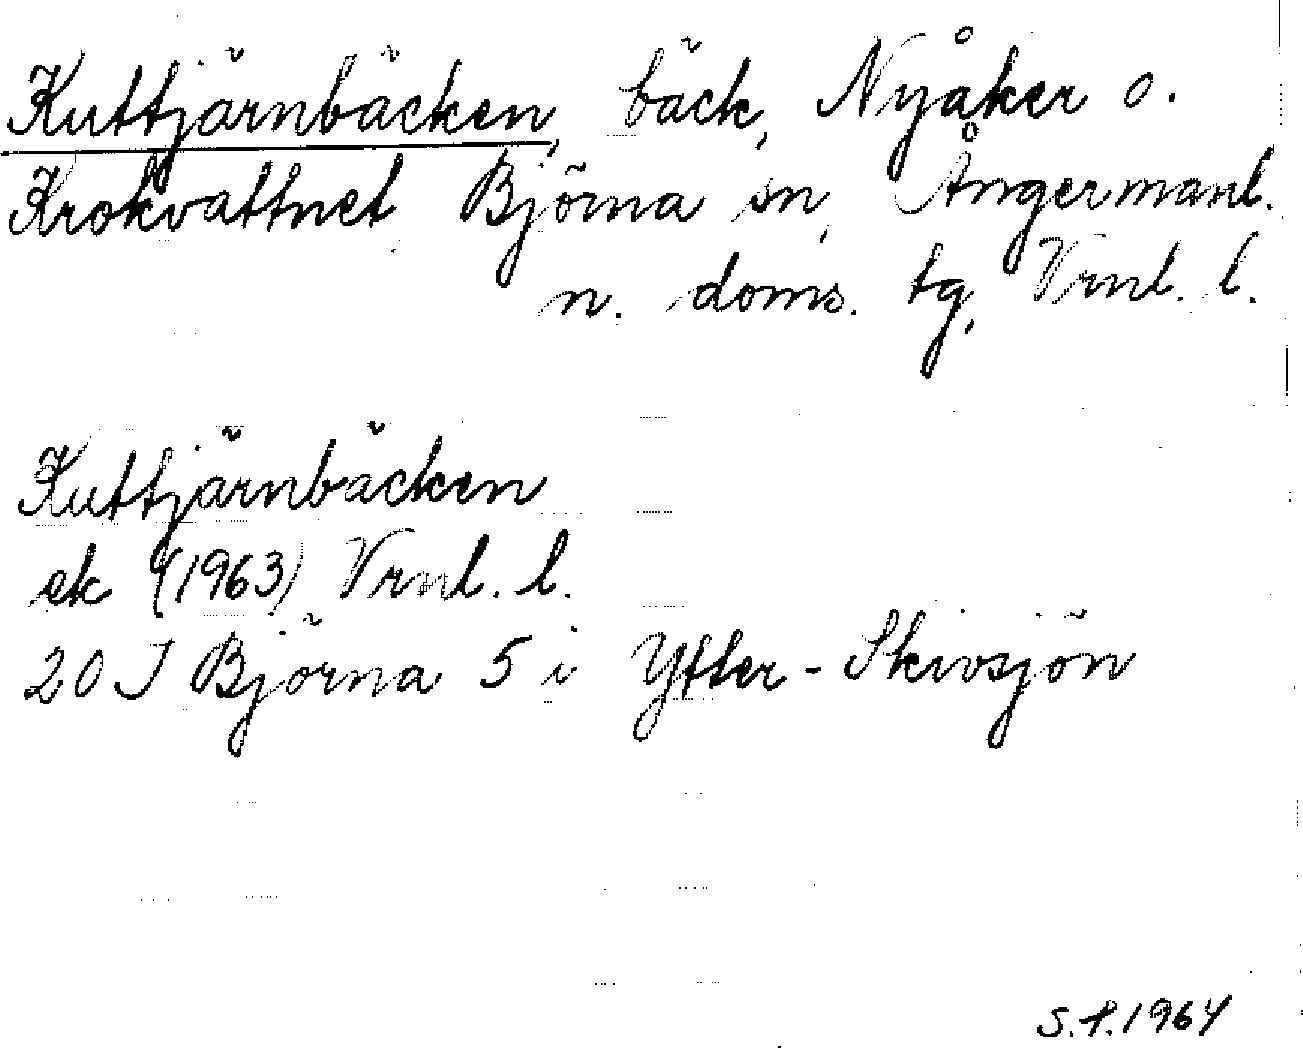 Kuttjärnbäcken, bäck, Nyåker o.
Krokvattnet, Björna sn, Ångermanl.
n. doms. tg, Vrnl. l.
Kuttjärnbäcken
ek (1963) Vrnl. l.
20 J Björna 5 i Ytter-Skivsjön
S.P. 1964